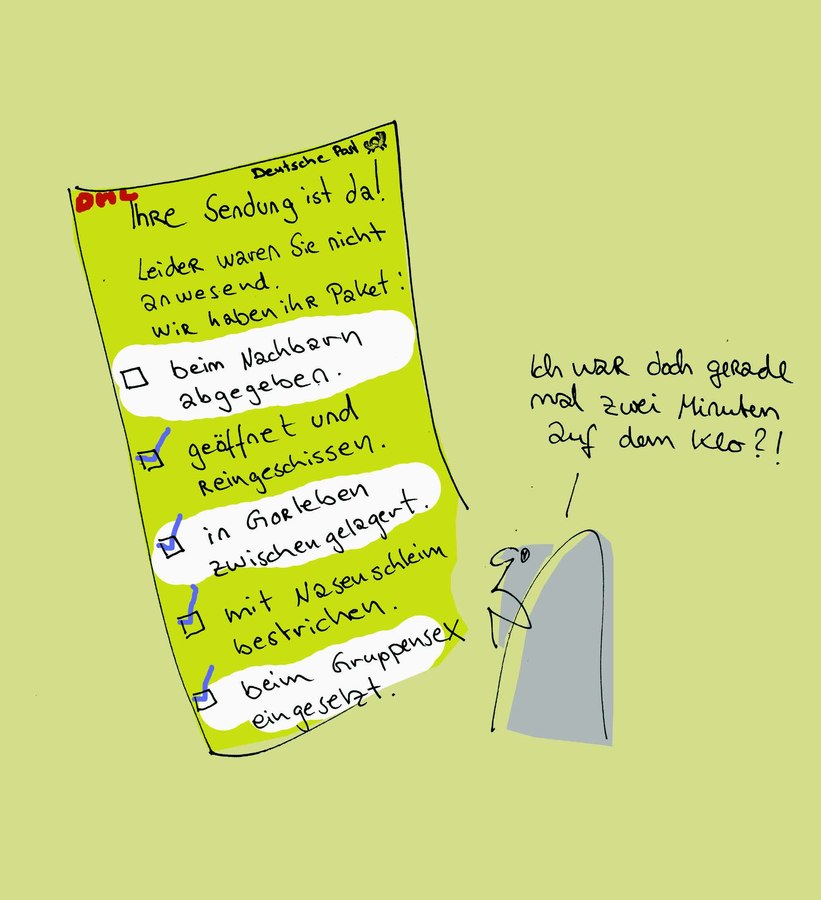 Deutsche Post
DHL
Ihre Sendung ist da!
Leider waren Sie nicht
anwesend.
Wir haben ihr Paket:
beim Nachbarn
abgegeben.
geöffnet und
reingeschissen.
in Gorleben
zwischengelagert.
mit Nasenschleim
bestrichen.
beim Gruppensex
eingesetzt.
Ich war doch gerade
mal zwei Minuten
auf dem Klo?!